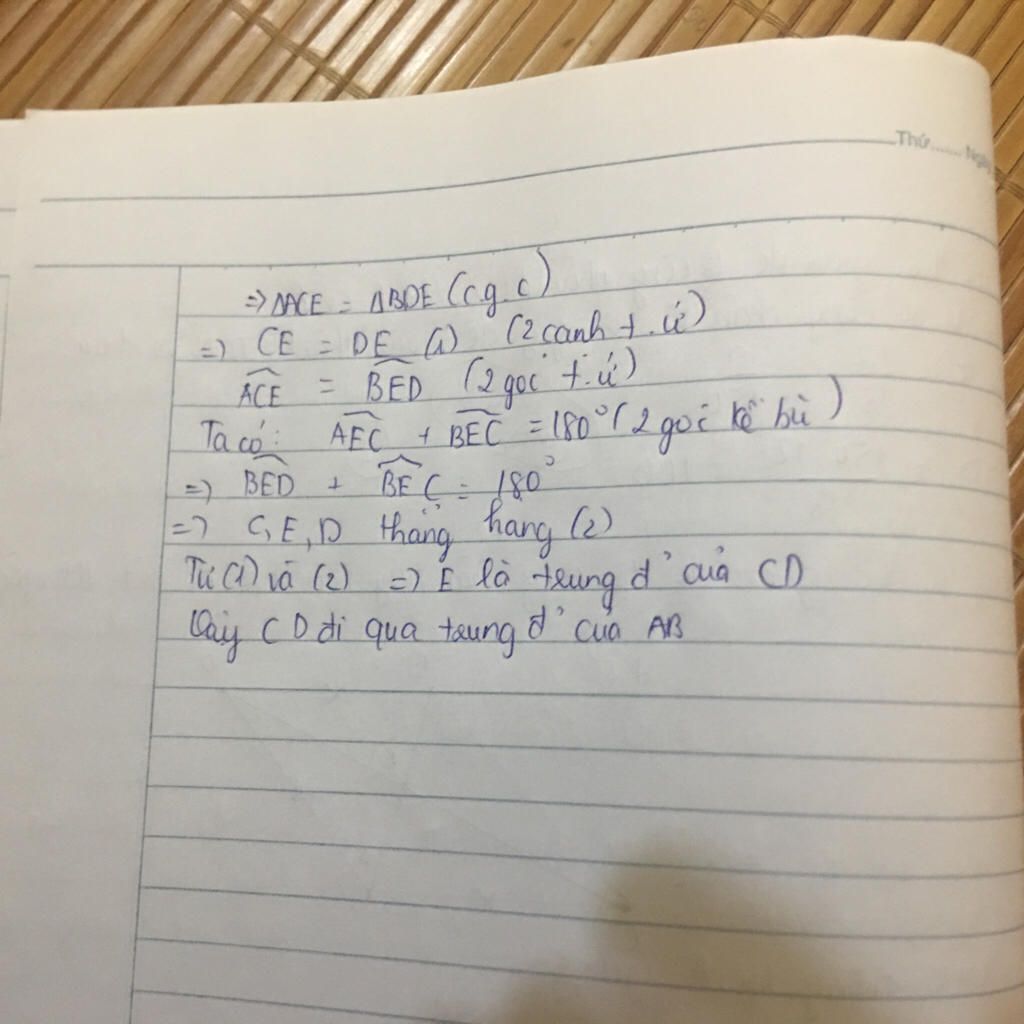 Thứ...... Ngày
=> ΔACE = ΔBDE (c.g.c)
=> CE = DE (1) (2 cạnh t.ứ)
ACE = BED (2 góc t.ứ)
Ta có: AEC + BEC = 180° (2 góc kề bù)
=> BED + BEC = 180°
=> C, E, D thẳng hàng (2)
Từ (1) và (2) => E là trung đ' của CD
Vậy CD đi qua trung đ' của AB